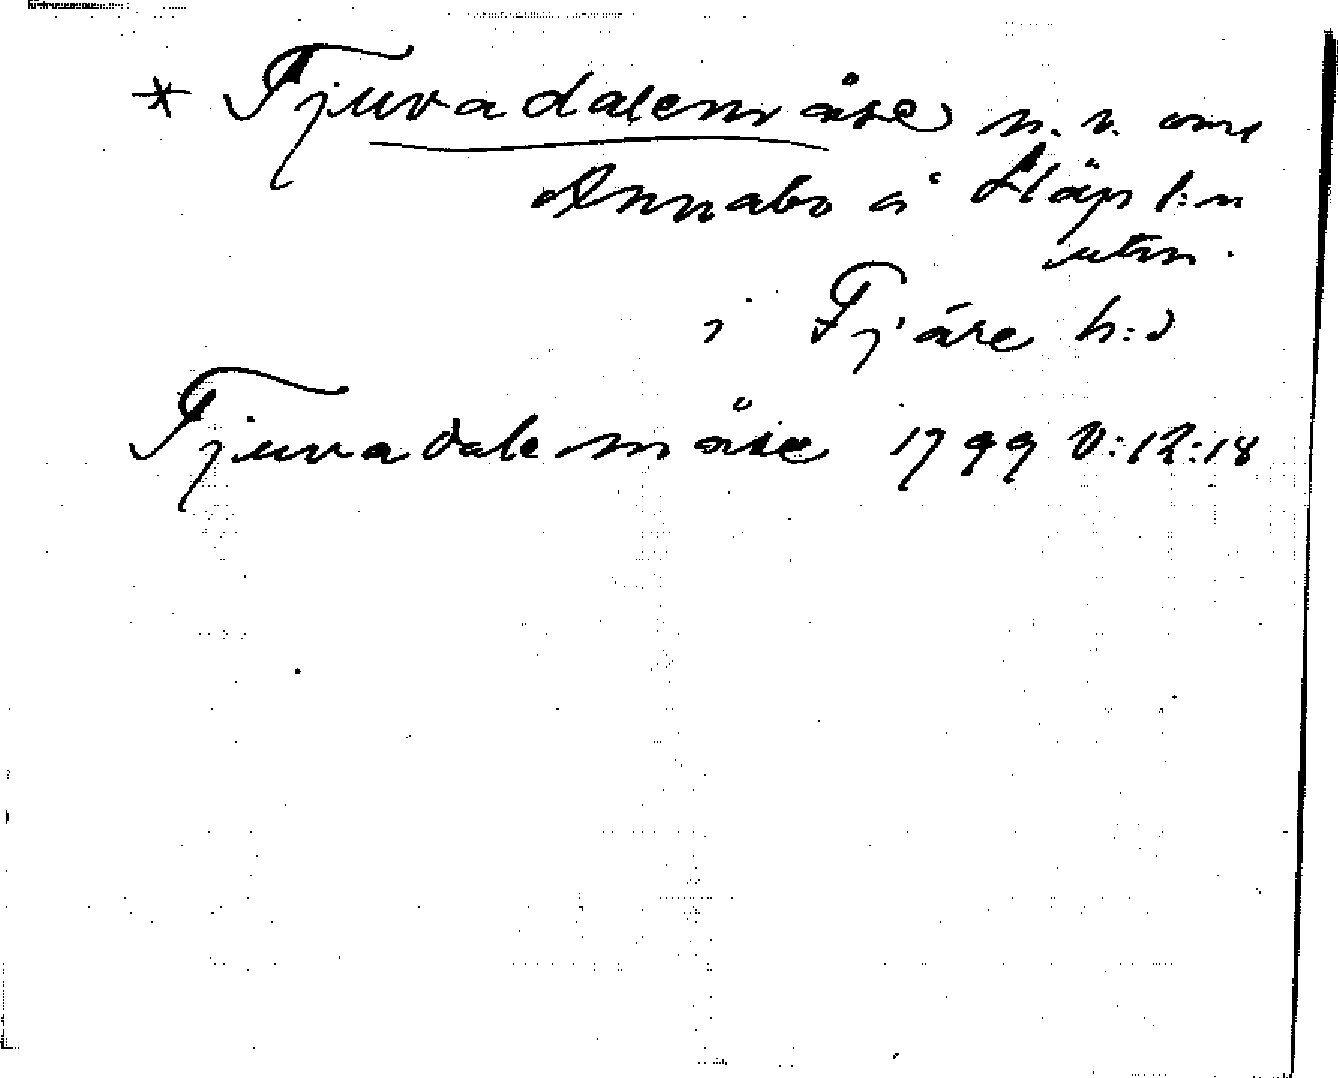 * Tjuvadalemåse n. v. om
Annabo å Släps l:n
utm.
i Fjäre h:d
Tjuvadalemåse 1799 V:12:18